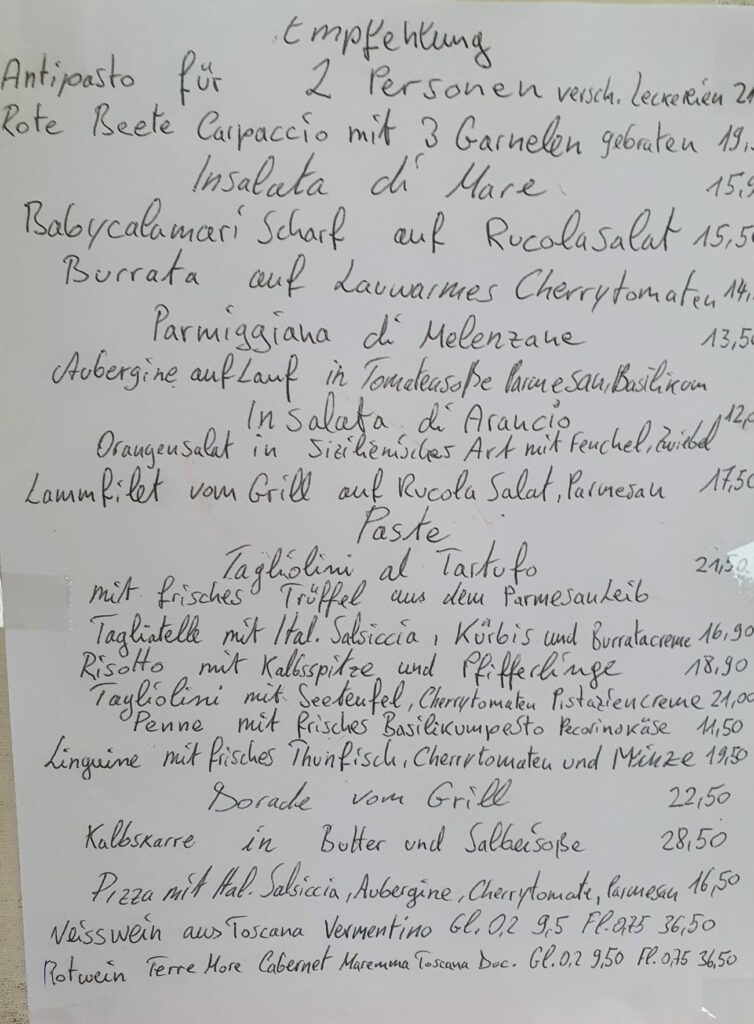 Empfehlung
Antipasto für 2 Personen versch. Leckereien 21
Rote Beete Carpaccio mit 3 Garnelen gebraten 19,
Insalata di Mare 15,9
Babycalamari Scharf auf Rucolasalat 15,50
Burrata auf Lauwarmes Cherrytomaten 14,
Parmiggiana di Melenzane 13,50
Aubergine auflauf in Tomatensoße Parmesan, Basilikum
Insalata di Arancio 12,
Orangensalat in Sizilienisches Art mit Fenchel, Zwiebel
Lammfilet vom Grill auf Rucola Salat, Parmesan 17,50
Paste
Tagliolini al Tartufo 21,50
mit frisches Trüffel aus dem Parmesanleib
Tagliatelle mit Ital. Salsiccia, Kürbis und Burratacreme 16,90
Risotto mit Kalbsspitze und Pfifferlinge 18,90
Tagliolini mit Seeteufel, Cherrytomaten Pistaziencreme 21,00
Penne mit frisches Basilikumpesto Pecorinokäse 11,50
Linguine mit frisches Thunfisch, Cherrytomaten und Minze 19,50
Dorade vom Grill 22,50
Kalbskarre in Butter und Salbeisoße 28,50
Pizza mit Ital. Salsiccia, Aubergine, Cherrytomate, Parmesan 16,50
Weisswein aus Toscana Vermentino Gl. 0,2 9,5 Fl. 0,75 36,50
Rotwein Terre More Cabernet Maremma Toscana Doc. Gl. 0,2 9,50 Fl. 0,75 36,50